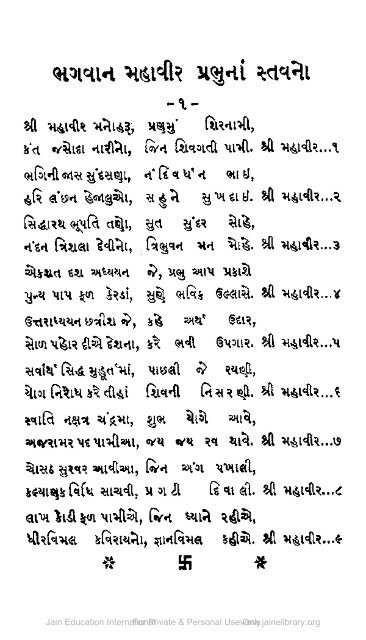 ભગવાન મહાવીર પ્રભુનાં સ્તવનો
-૧-
શ્રી મહાવીર મનોહરૂ, પ્રણમું શિરનામી,
કંત જસોદા નારીનો, જિન શિવગતી પામી. શ્રી મહાવીર...૧
ભગિની જાસ સુંદસણા, નંદિવર્ધન ભાઇ,
હરિ લંછન હેજાલુઓ, સહુને સુખદાઇ. શ્રી મહાવીર...૨
સિદ્ધારથ ભૂપતિ તણો, સુત સુંદર સોહે,
નંદન ત્રિશલા દેવીનો, ત્રિભુવન મન મોહે. શ્રી મહાવીર...૩
એકશત દશ અધ્યયન જે, પ્રભુ આપ પ્રકાશે
પુન્ય પાપ ફળ કેરડાં, સુણે ભવિક ઉલ્લાસે. શ્રી મહાવીર...૪
ઉત્તરાધ્યયન છત્રીશ જે, કહે અર્થ ઉદાર,
સોળ પહોર દીએ દેશના, કરે ભવી ઉપગાર. શ્રી મહાવીર...૫
સર્વાર્થ સિદ્ધ મુહૂર્તમાં, પાછલી જે રયણી,
યોગ નિરોધ કરે તીહાં શિવની નિસરણી. શ્રી મહાવીર...૬
સ્વાતિ નક્ષત્ર ચંદ્રમા, શુભ યોગે આવે,
અજરામર પદ પામીઆ, જય જય રવ થાવે. શ્રી મહાવીર...૭
ચોસઠ સુરવર આવીઆ, જિન અંગ પખાલી,
કલ્યાણક વિધિ સાચવી, પ્રગટી દિવાલી. શ્રી મહાવીર...૮
લાખ કોડી ફળ પામીએ, જિન ધ્યાને રહીએ,
ધીરવિમલ કવિરાયનો, જ્ઞાનવિમલ કહીએ. શ્રી મહાવીર...૯
Jain Education International For Private & Personal Use Only www.jainelibrary.org